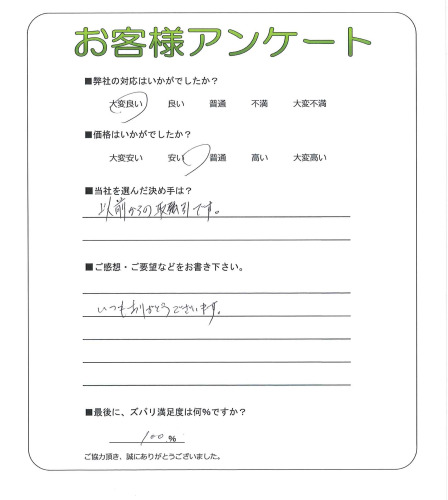 お客様アンケート
■弊社の対応はいかがでしたか？
大変良い 良い 普通 不満 大変不満
■価格はいかがでしたか？
大変安い 安い 普通 高い 大変高い
■当社を選んだ決め手は？
以前からの取引です。
■ご感想・ご要望などをお書き下さい。
いつもありがとうございます。
■最後に、ズバリ満足度は何％ですか？
100 ％
ご協力頂き、誠にありがとうございました。